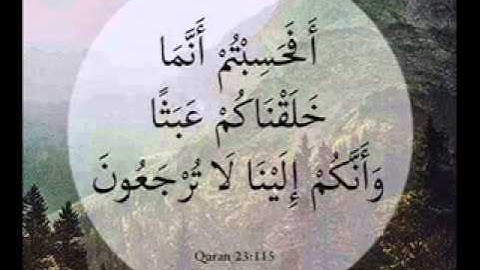 أَفَحَسِبْتُمْ أَنَّمَا
خَلَقْنَاكُمْ عَبَثًا
وَأَنَّكُمْ إِلَيْنَا لَا تُرْجَعُونَ
Quran 23:115